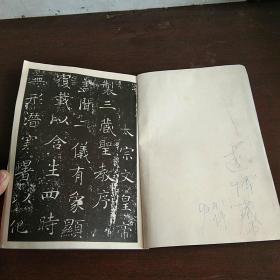 太宗文皇帝
製三藏聖教序
蓋聞二儀有象顯
覆載以含生四時
無形潛寒暑以化